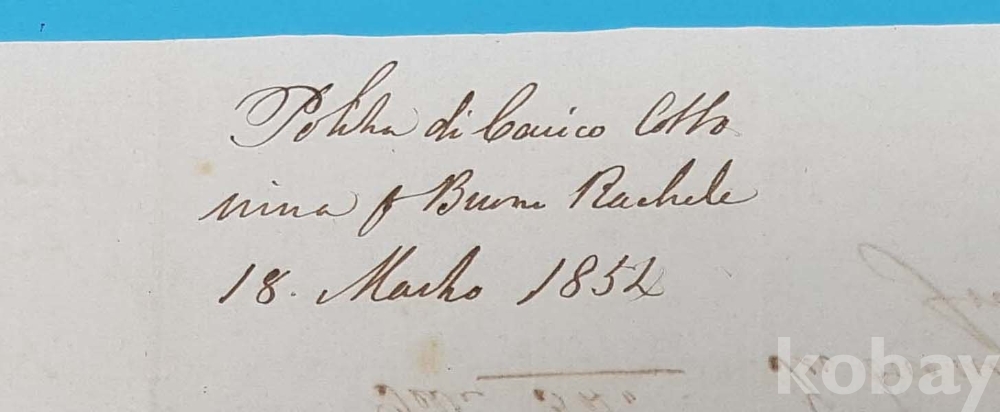 Polizza di Carico Cotto
nina p Buona Rachele
18. Marzo 1854
kobay